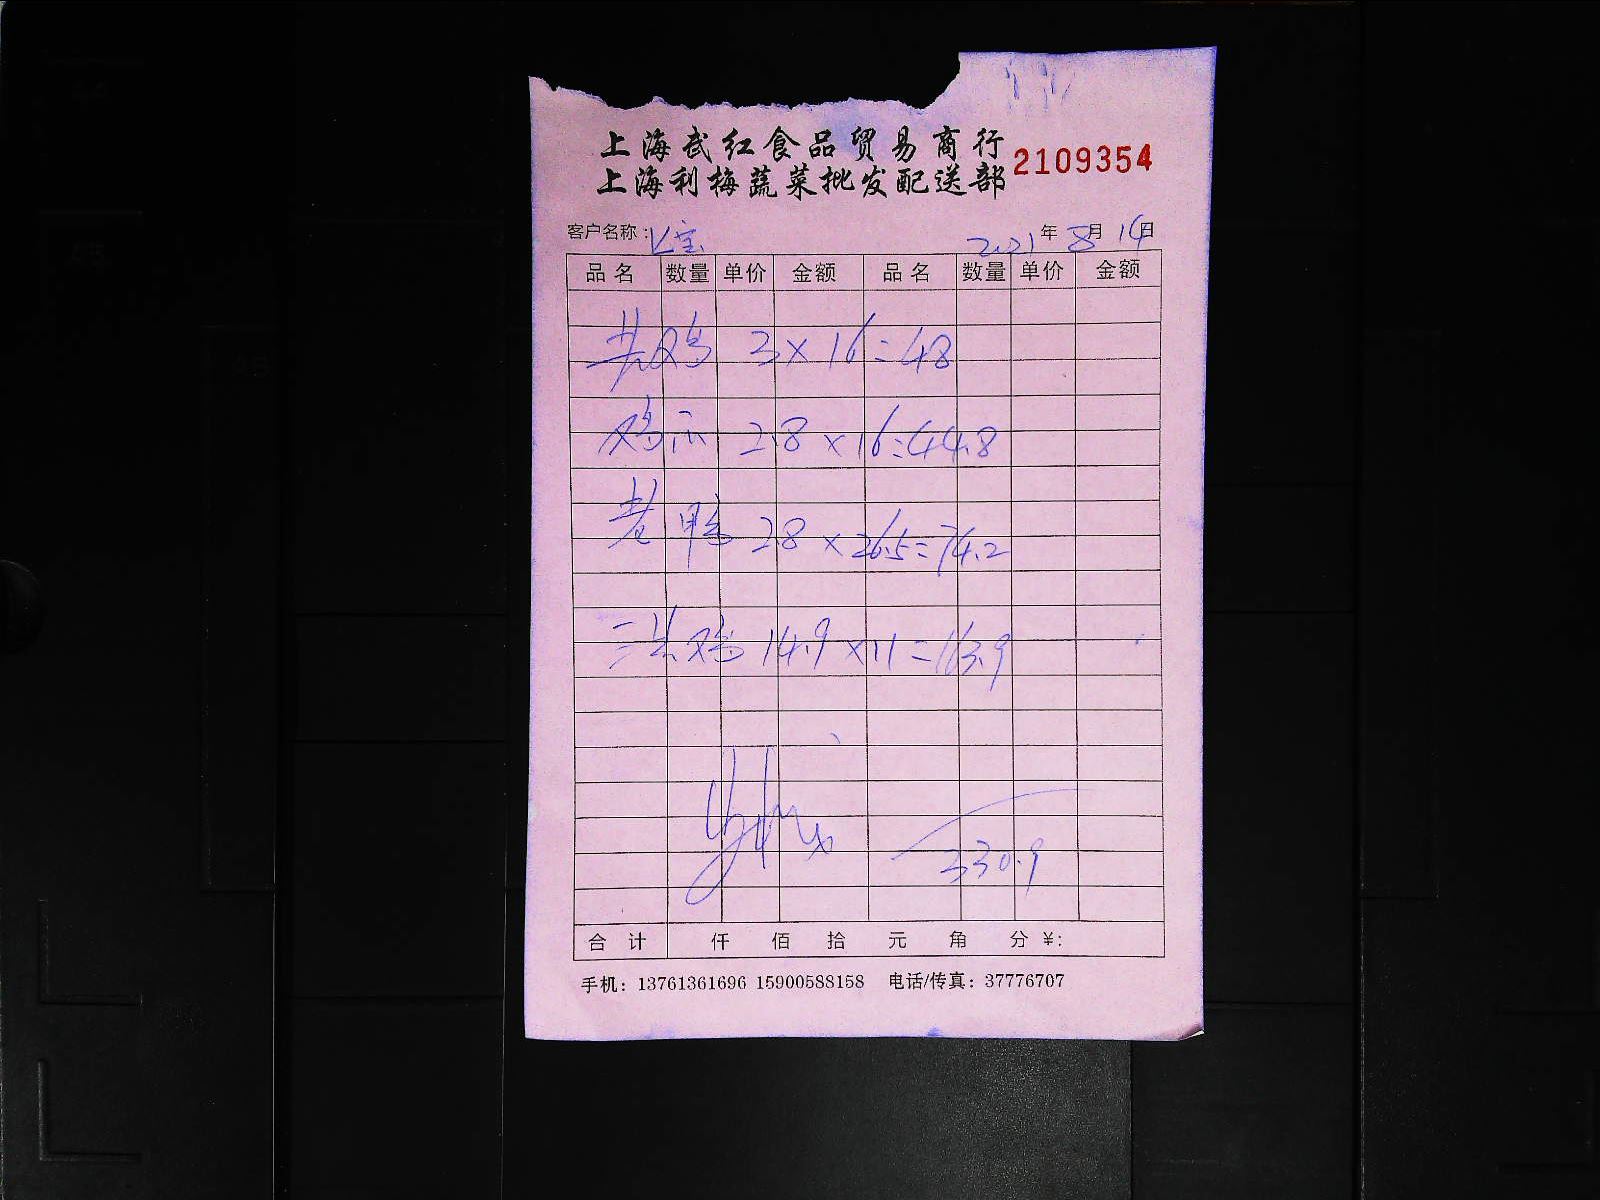 上海武红食品贸易商行
上海利梅蔬菜批发配送部
2109354
客户名称：
2021年8月14日
品名 数量 单价 金额 品名 数量 单价 金额
鸡 3×16=48
鸡 2.8×16=44.8
老鸭 2.8×26.5=74.2
三黄鸡 14.9×11=163.9
330.9
合计 仟 佰 拾 元 角 分 ¥:
手机：13761361696 15900588158 电话/传真：37776707